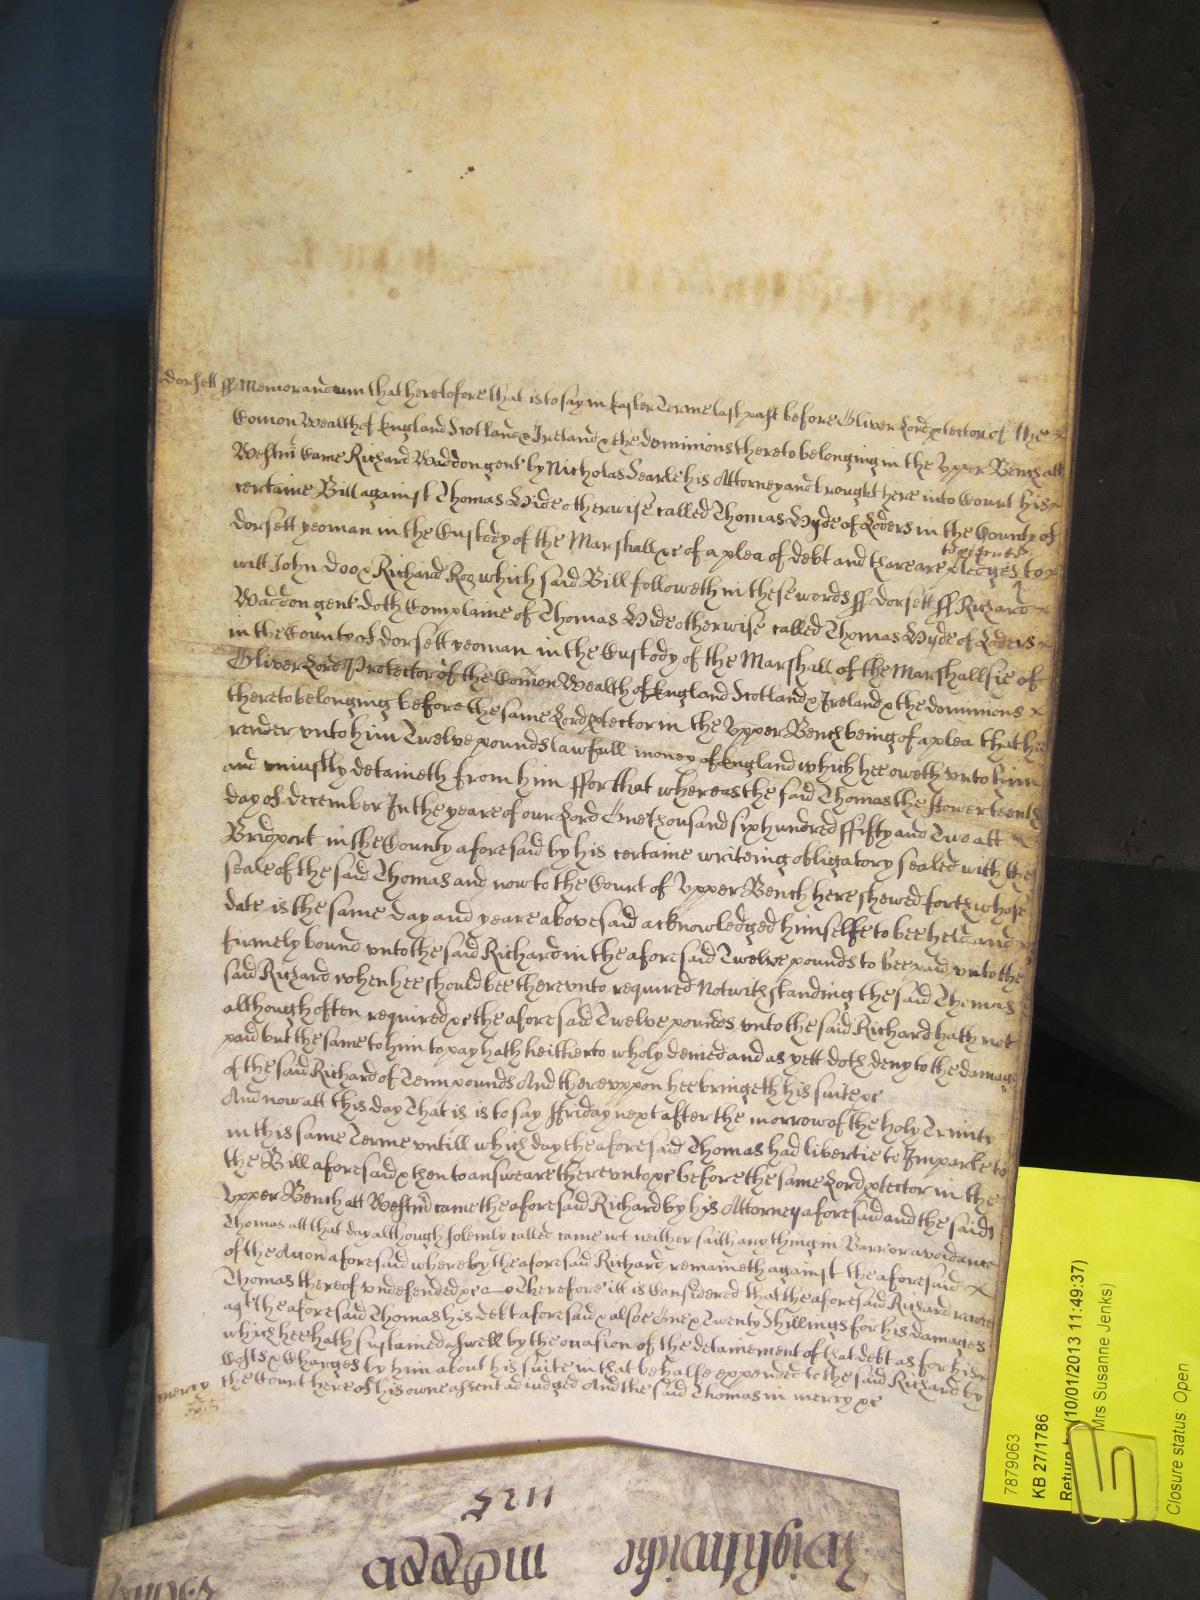 dorsett ss Memorandum that heretofore that is to say in Easter Terme last past before Oliver Lord ptector of the
Comon Wealth of England Scotland & Ireland & the dominions thereto belonging in the Upper Bench att
Westmr Came Richard Waddon gent by Nicholas Searle his Attorney and brought here into Court his
certaine Bill against Thomas Hide otherwise called Thomas Hyde of Loders in the County of
dorsett yeoman in the Custody of the Marshall &c of a plea of debt and there are pledges to
witt John Doo & Richard Roo which said Bill followeth in these words ss dorsett ss Richard
Waddon gent doth Complaine of Thomas Hide otherwise called Thomas Hyde of Loders
in the County of dorsett yeoman in the Custody of the Marshall of the Marshallsie of
Oliver Lord Protector of the Comon Wealth of England Scotland & Ireland & the dominions
thereto belonging before the same Lord ptector in the Upper Bench being of a plea that hee
render unto him Twelve pounds lawfull money of England which hee oweth unto him
and uniustly detaineth from him ffor that whereas the said Thomas the fowerteenth
day of december In the yeare of our Lord One thousand six hundred ffifty and Two att
Bridport in the County aforesaid by his certaine writeing obligatory sealed with the
seale of the said Thomas and now to the Court of Upper Bench here shewed forth whose
date is the same day and yeare abovesaid acknowledged himselfe to bee held and
firmely bound unto the said Richard in the aforesaid Twelve pounds to bee paid unto the
said Richard when hee should bee thereunto required Notwithstanding the said Thomas
although often required &c the aforesaid Twelve pounds unto the said Richard hath not
paid but the same to him to pay hath heitherto wholy denied and as yett doth deny to the damage
of the said Richard of Tenn pounds And thereuppon hee bringeth his suite &c
And now att this day That is is to say ffriday next after the morrow of the holy Trinity
in this same Terme untill which day the aforesaid Thomas had libertie to Imparle to
the Bill aforesaid & then to answeare thereunto &c before the same Lord ptector in the
Upper Bench att Westmr came the aforesaid Richard by his Attorney aforesaid and the said
Thomas att that day although solemly called came not neither saith any thing in Barr or avoidance
of the Accon aforesaid whereby the aforesaid Richard remaineth against the aforesaid
Thomas thereof undefended &c Therefore itt is Considered that the aforesaid Richard recover
agt the aforesaid Thomas his debt aforesaid & alsoe One & Twenty Shillings for his damages
which hee hath sustained aswell by the occasion of the detainement of that debt as for his
Costs & Charges by him about his suite in that behalfe expended to the said Richard by
mercy the Court here of his owne assent adiudged And the said Thomas in mercy &c
1125
Wightwicke
7879063
KB 27/1786
(10/01/2013 11:49:37)
Mrs Susanne Jenks)
Closure status: Open